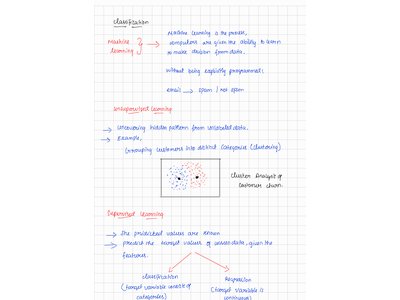 Classification
Machine learning is the process,
Machine learning } → computers are given the ability to learn
to make decision from data.
without being explicitly programmed:
email → spam / not spam
Unsupervised Learning
→ Uncovering hidden pattern from unlabeled data.
→ Example,
Grouping customers into distinct categories (clustering)
Cluster Analysis of
customer churn.
Supervised Learning
→ The predicted values are known
→ predict the target values of unseen data, given the
features.
Classification
(target variable consists of
categories)
Regression
(target variable is
continuous)